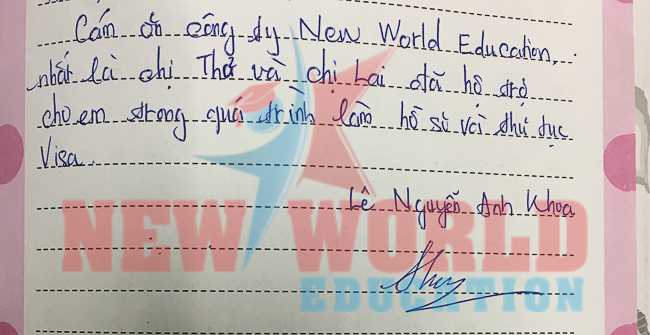 Cám ơn công ty New World Education,
nhất là chị Thơ và chị Lai đã hỗ trợ
cho em trong quá trình làm hồ sơ và thủ tục
Visa.
Lê Nguyễn Anh Khoa
NEW WORLD
EDUCATION